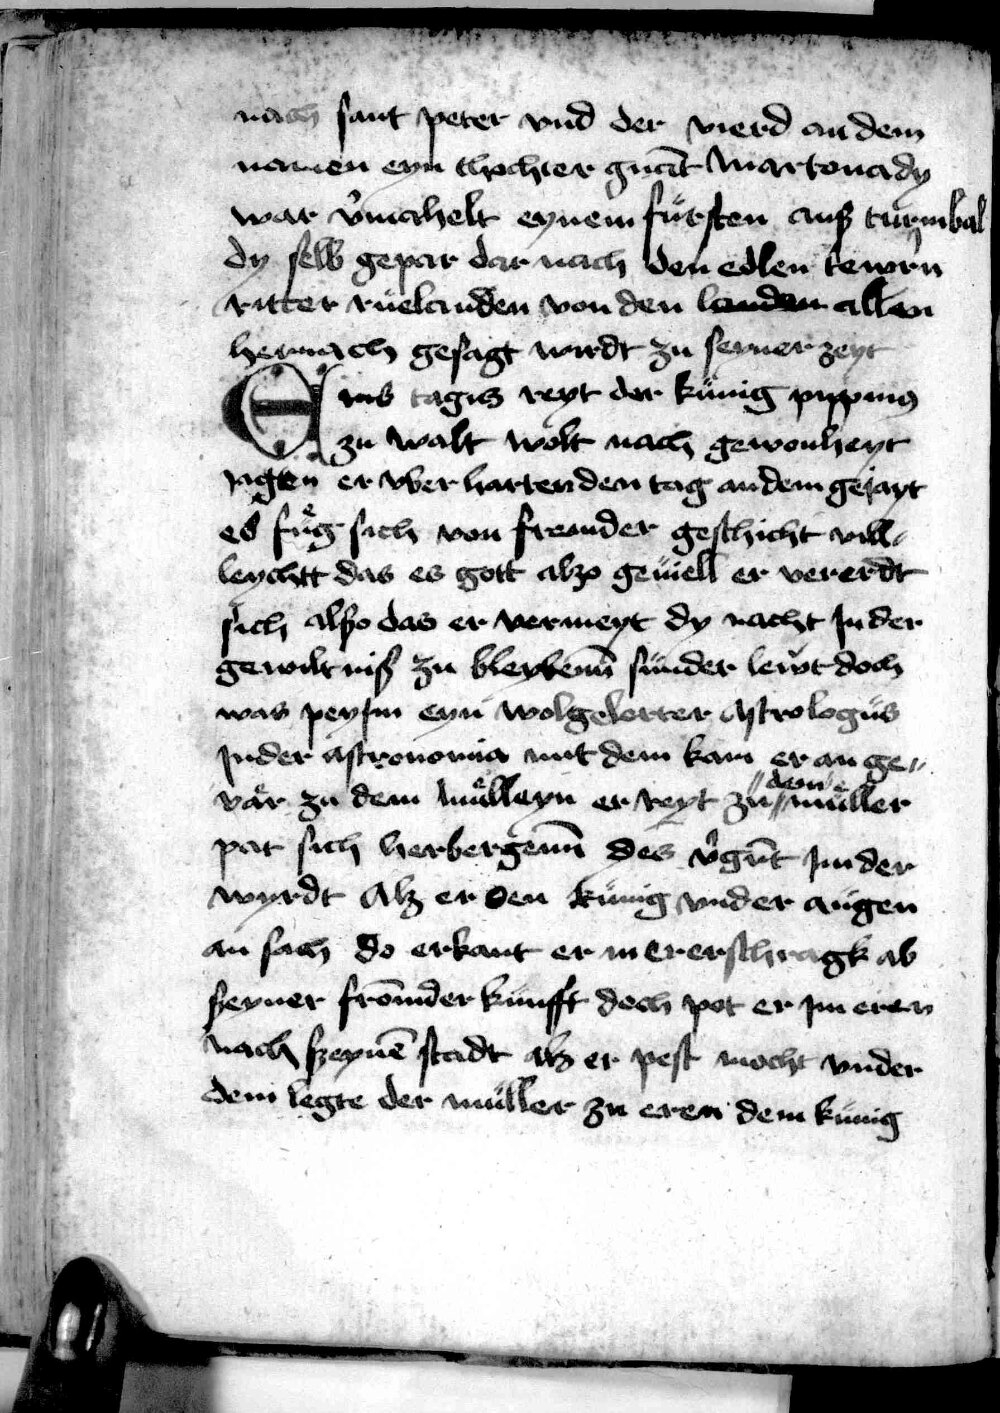 nach sant peter vnd der vierd an dem
namen eyn thochter gnāt Martonady
war v̓mahelt eynem fürsten auß turnbal
dy selb gepar dar nach den edlen tewrn
ritter rüelanden von den landen allen
hernach gesagt wirdt zu seyner zeyt
Eins tagis reyt der künig pippinus
zu walt wolt nach gewonheyt
Jagten er vber harten den tag an dem gejayt
es füg sich von fremder geschicht vill-
leychtt das es gott alzo geuiell er vererdt
sich alßo das er vermeyt dy nacht Jn der
gewiltniß zu bleybenn sunder lewt doch
was peysin eyn wolgelerter Astrologüs
Jn der astronomia mit dem kam er an ge-
vär zu dem mülleyn er reyt zu dem müller
pat sich herbergenn des v̓gūt Jm der
wyrdt Alz er den künig vnder augen
an sach do erkant er in er erschragk ab
seyner frömder kunfft doch pot er Jm eren
nach szeynē stadt alz er pest mocht vnder
dem legte der müller zu eren dem künig